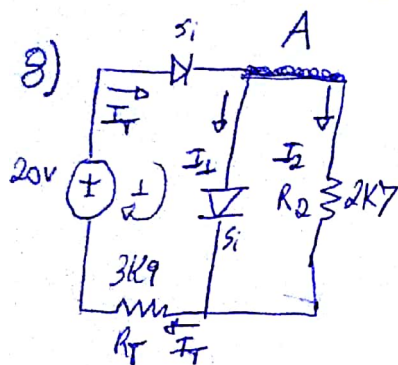 8)
Si
A
I_T
20V
+
1
I_1
I_2
R_2
2K7
Si
3K9
R_T
I_T